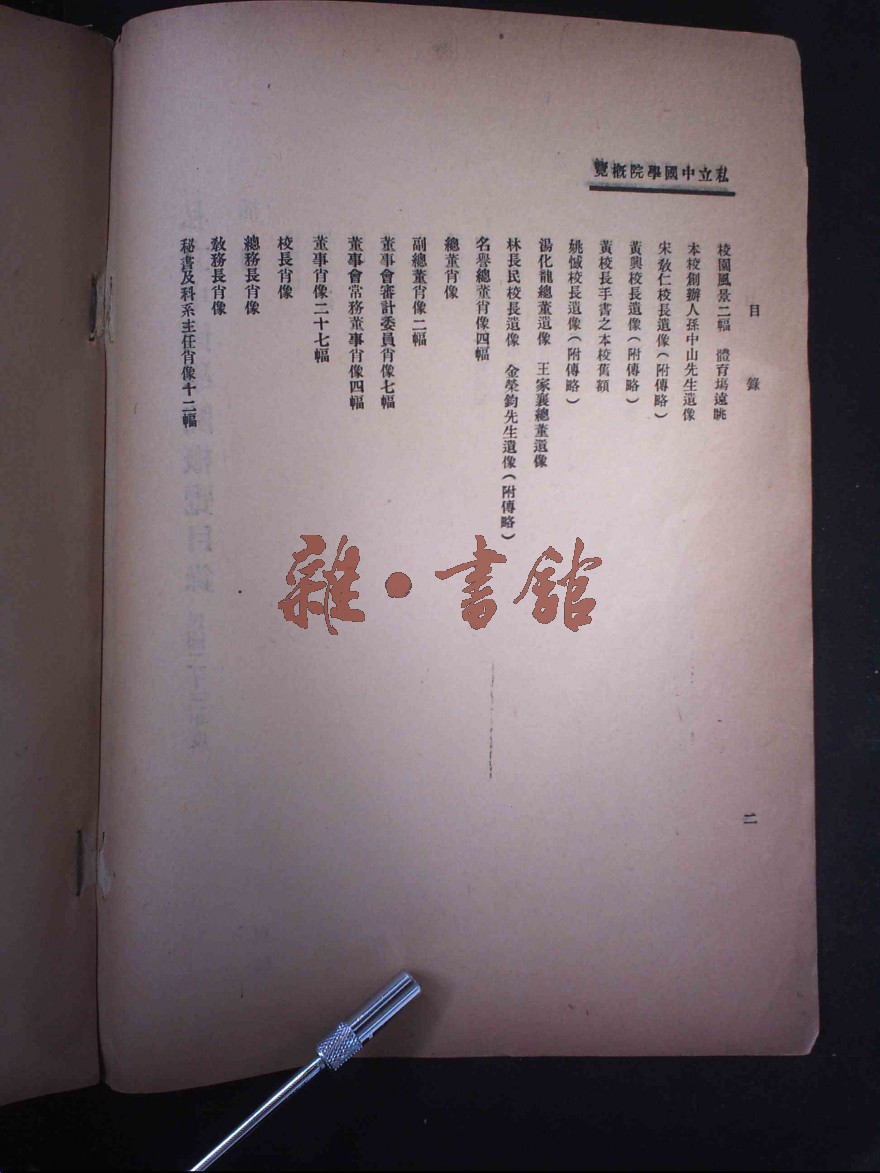 私立中國學院概覽
目錄
二
校園風景二幅　體育塲遠眺
本校創辦人孫中山先生遺像
宋敎仁校長遺像(附傳略)
黃興校長遺像(附傳略)
黃校長手書之本校舊額
姚憾校長遺像(附傳略)
湯化龍總董遺像　王家襄總董遺像
林長民校長遺像　金榮鈞先生遺像(附傳略)
名譽總董肖像四幅
總董肖像
副總董肖像二幅
董事會審計委員肖像七幅
董事會常務董事肖像四幅
董事肖像二十七幅
校長肖像
總務長肖像
敎務長肖像
秘書及科系主任肖像十二幅
雜·書館